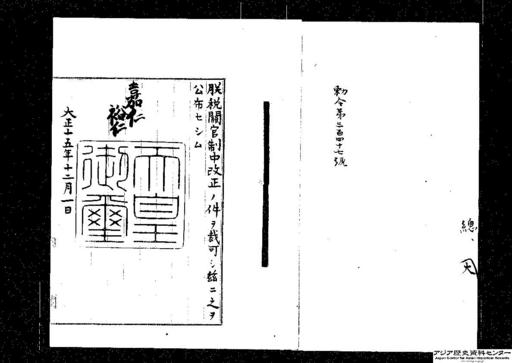 勅令第三百四十七號
總、
朕税關官制中改正ノ件ヲ裁可シ玆ニ之ヲ
公布セシム
嘉仁
裕仁
天皇
御璽
大正十五年十二月一日
アジア歴史資料センター
Japan Center for Asian Historical Records